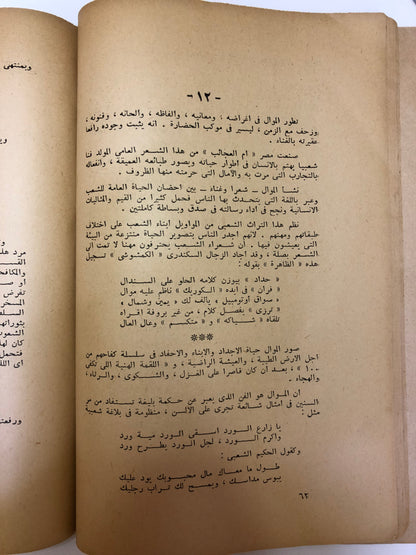 - ١٢ -
تطور الموال فى اغراضه ، ومعانيه ، والفاظه ، والحانه ، وفنونه ،
وزحف مع الزمن ، ليسير فى موكب الحضارة . انه يثبت وجوده رافعا
عقيرته بالغناء .
صنعت مصر « ام العجائب » من هذا الشعر العامى المولد فنا
شعبيا يهتم بالانسان فى اطوار حياته ويصور طبائعه العميقة ، وانفعاله
بالتجارب التى مرت به والآمال التى حرمته منها الظروف .
نشأ الموال ـ شعرا وغناء ـ بين احضان الحياة العامة للشعب
وعبر باللغة التى يتحدث بها الناس فحمل كثيرا من القيم والشاليات
الانسانية ونجح فى اداء رسالته فى صدق وبساطة كاملتين .
نظم هذا التراث الشعبى من المواويل ابناء الشعب على اختلاف
طبقاتهم ومهنهم .. لانهم اجدر الناس بتصوير الحياة منتزعة من البيئة
التى يعيشون فيها . أن شعراء الشعب يحترفون مهنا لا تمت الى
الشعر بصلة ، وقد اجاد الزجال السكندرى « الكمشوشى » تسجيل
هذه « الظاهرة » بقوله :
« حداد » بيوزن كلامه الحلو على السندال
« فران » فى ايده « الكوريك » ناظم عليه موال
« سواق أوتومبيل » يالف لك « يمين وشمال »
« ترزى » بفصل كلام ، من غير بروفة افراه
تلقاه « شباكه » و « متكسم » وعال العال
***
صور الموال حياة الاجداد والابناء والاحفاد فى سلسلة كفاحهم من
اجل الارض الطيبة ، والعيشة الراضية ، و « اللقمة الهنية اللى تكفى
١٠٠ » ، بعد أن كان قاصرا على الغزل ، والشكوى ، والرثاء ،
والهجاء .
ان الموال هو الفن الذى يعبر عن حكمة بليغة تستفاد من مر
السنين فى أمثال شائعة تجرى على الالسن ، منظومة فى بلاغة شعبية
مثل :
يا زارع الورد اسقى الورد مية ورد
واكرم الورد ، لجل الورد يطرح ورد
وكقول الحكيم الشعبى :
طول ما معاك مال محبوبك يود عليك
يبوس مداسك ، ويمسح لك تراب رجليك
٦٢
وبمنتهى
مرد هذ
والمكافح
تفرض
بثوراتها
الشعوب
كان لها
فتحمل
ورفعتو